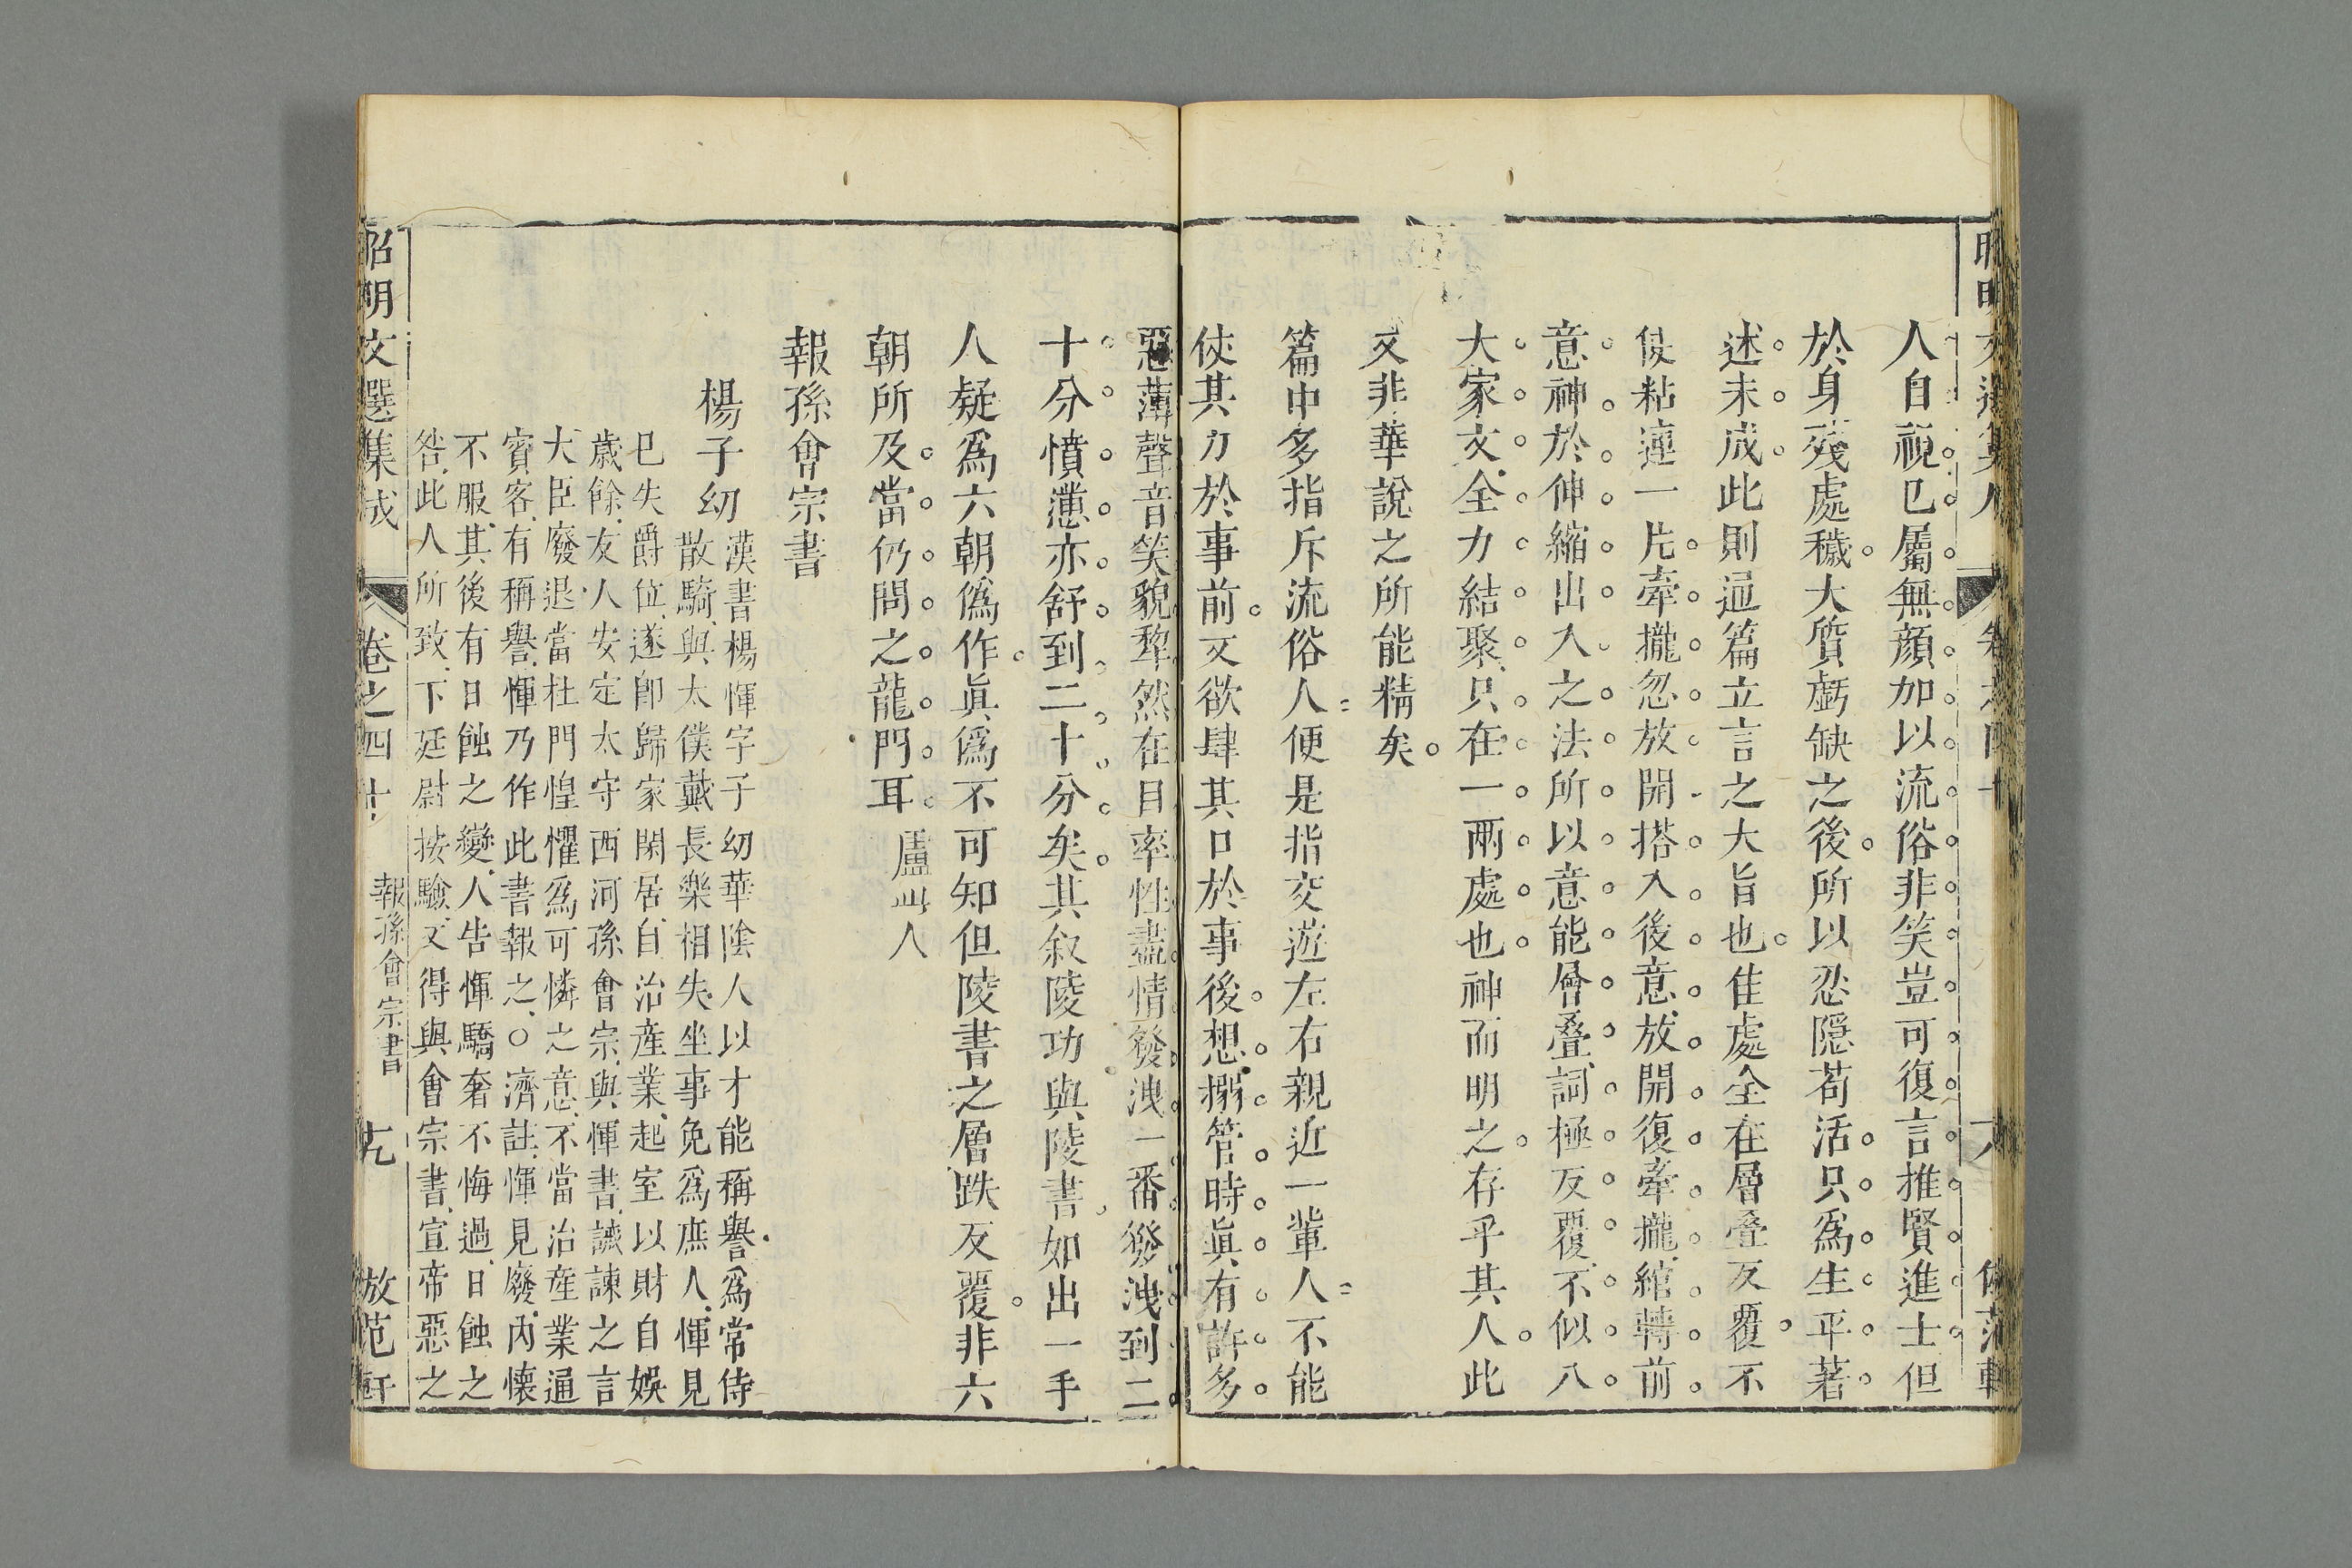 人自視巳屬無顔加以流俗非笑豈可復言推賢進士但
於身殘處穢大質虧缺之後所以忍隱苟活只爲生平著
述未成此則通篇立言之大旨也佳處全在層叠反覆不
使粘連一片牽攏忽放開搭入後意放開復牽攏綰轉前
意神於伸縮出入之法所以意能層叠詞極反覆不似八
大家文全力結聚只在一兩處也神而明之存乎其人此
又非華說之所能精矣
篇中多指斥流俗人便是指交遊左右親近一輩人不能
使其力於事前又欲肆其口於事後想搦管時眞有許多
惡薄聲音笑貌犂然在目率性盡情發洩一番發洩到二
十分憤懣亦舒到二十分矣其叙陵功與陵書如出一手
人疑爲六朝僞作眞僞不可知但陵書之層跌反覆非六
朝所及當仍問之龍門耳
報孫會宗書
楊子幼
漢書楊惲字子幼華陰人以才能稱譽爲常侍
散騎與太僕戴長樂相失坐事免爲庶人惲見
巳失爵位遂卽歸家閑居自治産業起室以財自娛
歲餘友人安定太守西河孫會宗與惲書諫之言
大臣廢退當杜門惶懼爲可憐之意不當治産業通
賓客有稱譽惲乃作此書報之○濟註惲見廢内懷
不服其後有日蝕之變人告惲驕奢不悔過日蝕之
咎此人所致下廷尉按驗又得與會宗書宣帝惡之
昭明文選集成
卷之四十
報孫會宗書
放范軒